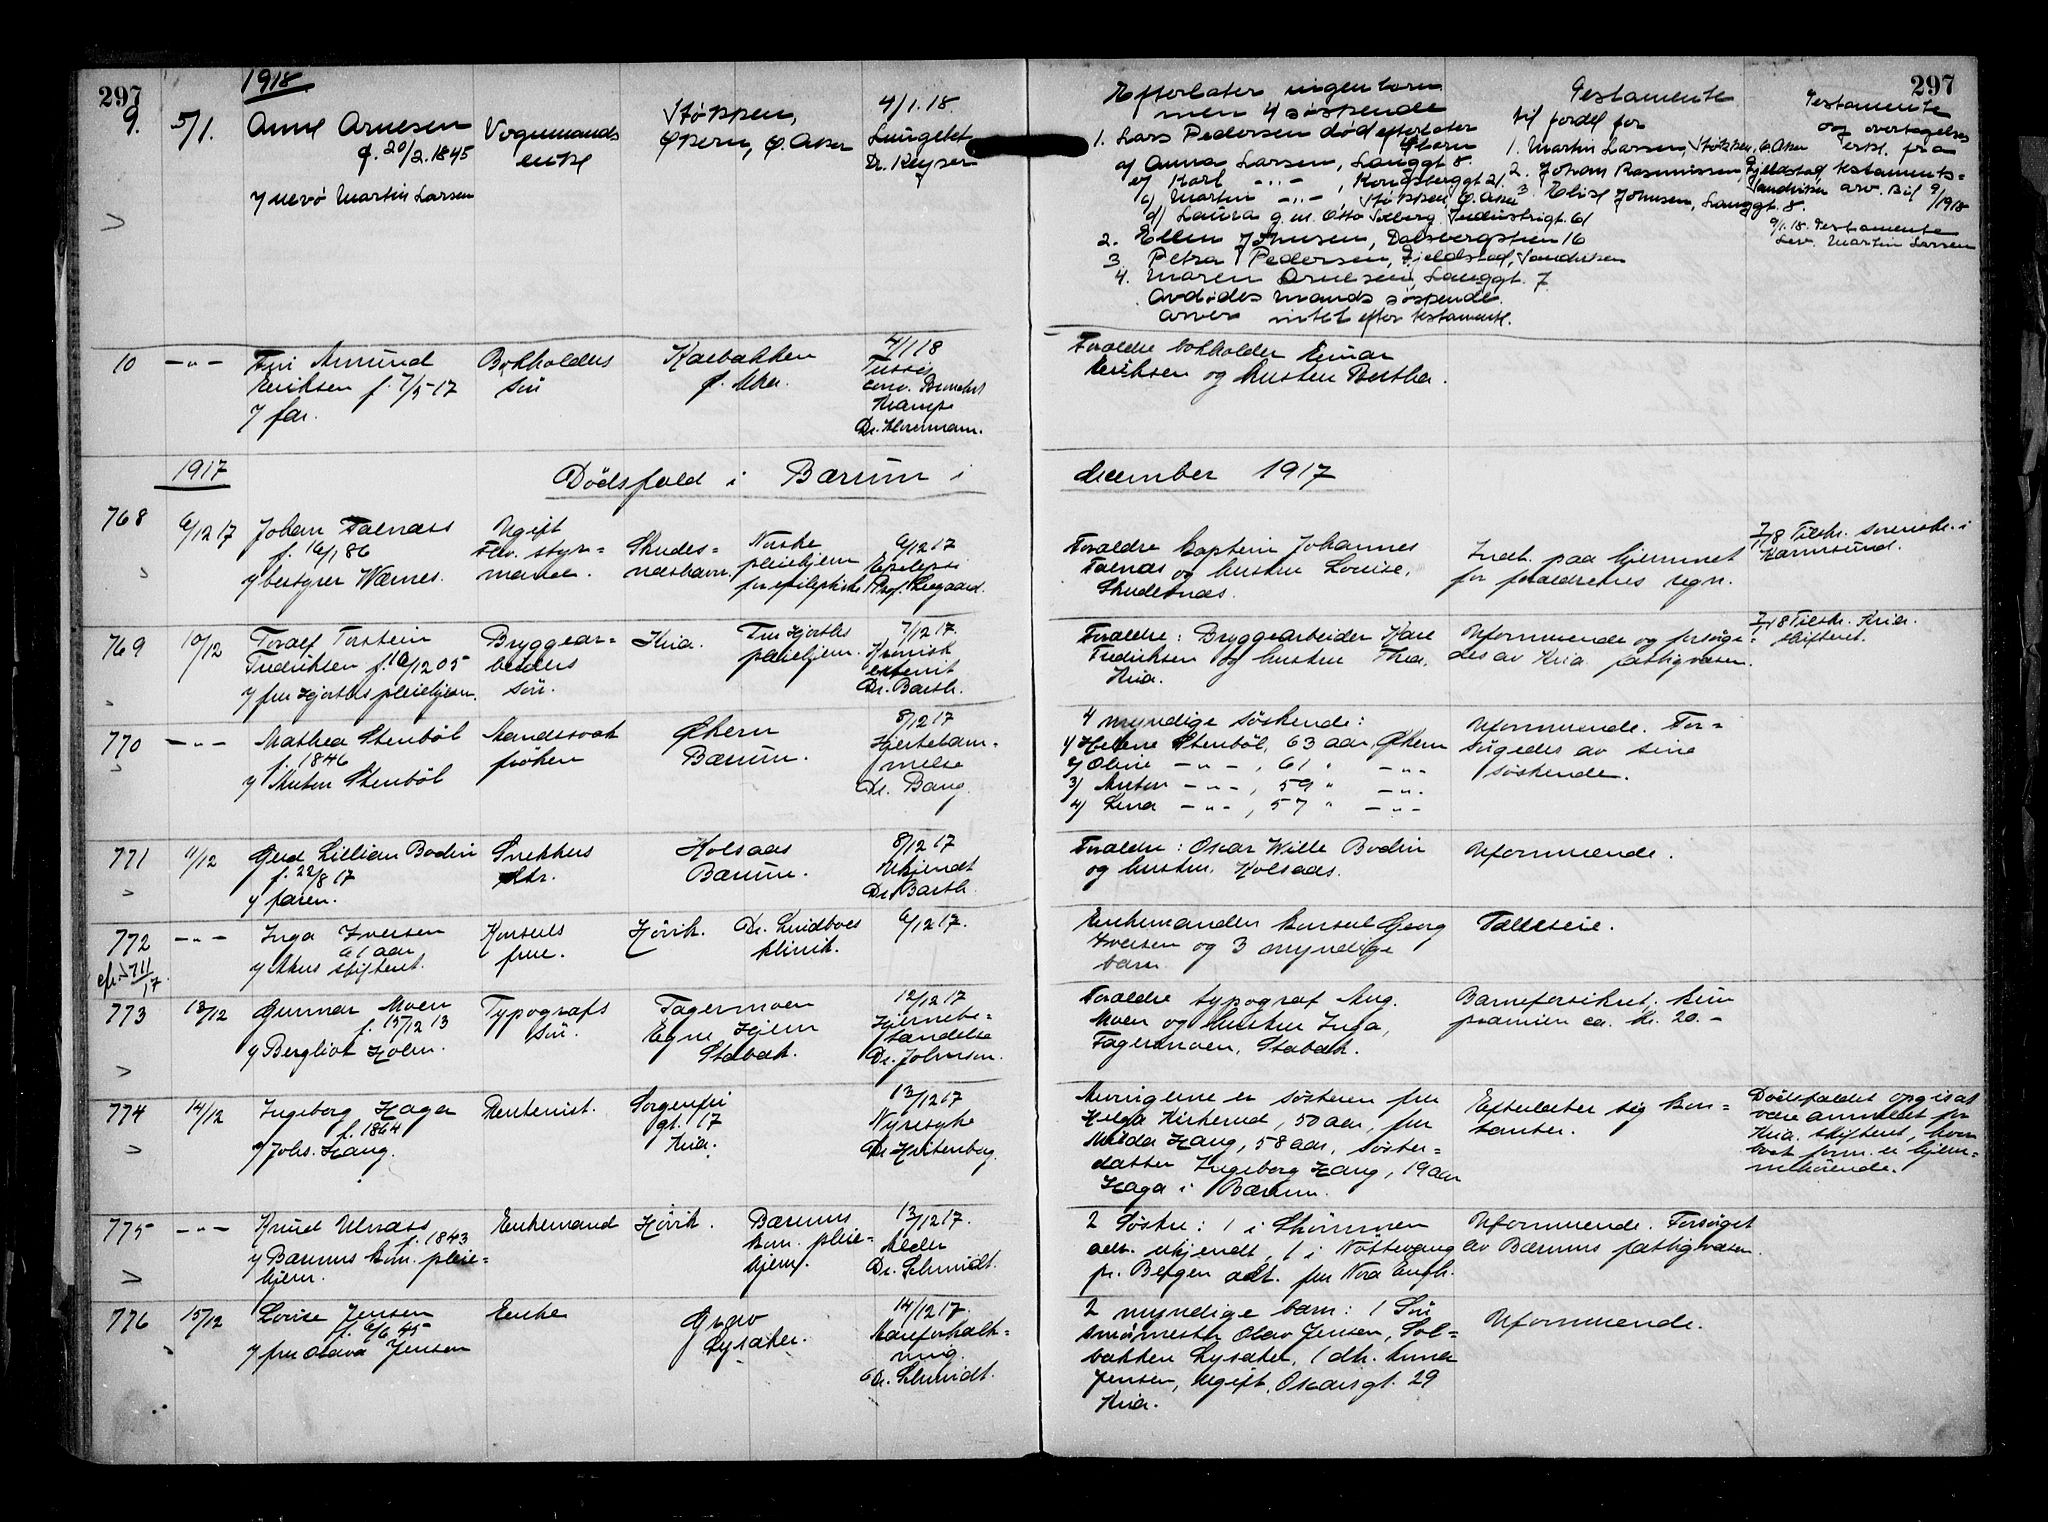 297
1918
9. 5/1. Anne Arnesen
f. 20/2.1845
v/ nevø Martin Larsen
Vognmands
enke
Støkken,
Økern, Ø. Aker
4/1.18
Lungebet.
Dr. Keyser
Efterlater ingen barn
men 4 søskende
1. Lars Pedersen død efterlater
4 barn
a/ Anna Larsen, Langgt 8.
b/ Karl -"- , Kongsberggt 21.
c/ Martin -"- , Støkken, Ø. Aker
d/ Laura g.m. Otto Solberg Industrigt. 61
2. Ellen Johnsen, Dalsbergstien 16
3. Petra Pedersen, Fjeldstad, Sandviken
4. Maren Arnesen, Langgt. 7
Avdødes mands søskende
arver intet efter testamente.
Testamente
til fordel for
1. Martin Larsen, Støkken, Ø. Aker
2. Johan Rasmussen Fjeldstad
Sandviken
3. Elise Johnsen, Langgt. 8.
297
Testamente
og overtagelses
erkl. fra
testaments=
arv. Bil 9/1918
9/1.18. Testamente
Lev. Martin Larsen
10 -"- Amund
Eriksen f. 7/5-17
v/ far.
Bokholders
søn
Kalbakken
Ø. Aker.
4/1 18
Krampe
Forældre bokholder Einar
Eriksen og hustru Bertha.
1917
Dödsfald i Bærum i
december 1917
768
6/12 17
Johan Falnæss
f. 16/1 86
v/ bestyrer Wærnes.
Ugift
styr=
mand.
Skudes=
neshavn.
Norske
pleiehjem
for epileptiske
6/12 17
Epilepsi
Forældre kaptein Johannes
Falnæs og hustru Louise,
Skudesnæs.
Indt. paa hjemmet
for forældrenes regn.
7/1 18 Tilskr. sorenskr. i
Karmsund.
769
10/12
Toralf Torstein
Fredriksen f. 10/12 05
v/ fru Hjorths pleiehjem.
Bryggear=
beiders
søn.
Kria.
Fru Hjorths
pleiehjem.
7/12 17.
Kronisk
Dr. Barth.
Forældre: Bryggearbeider Karl
Fredriksen og hustru Thea,
Kria.
Uformuende og forsørge=
des av Kria. fattigvæsen.
7/1 18 Tilskr. Kria.
skifteret.
770
-"-
Mathea Stenböl
f. 1846
v/ Anton Stenböl
frøken
Økern
Bærum.
8/12 17
Hjertelam=
melse
Dr. Bang.
4 myndige søskende:
1/ Helene Stenböl, 63 aar, Økern
2/ Oline -"- , 61 " -"-
3/ Anton -"- , 59 " -"-
4/ Lina -"- , 57 " -"-
Uformuende. For=
sörgedes av sine
söskende.
771
11/12
Gerd Lillian Bodin
f. 22/8 17
v/ faren.
Snekkers
dtr.
Kolsaas
Bærum.
8/12 17
Ukjendt
Dr. Barth.
Forældre: Oscar Wille Bodin
og hustru, Kolsaas.
Uformuende.
772
cfr. 711/17
-"-
Inga Iversen
61 aar
v/ Akers skifteret.
Konsuls
frue.
Hövik.
Dr. Lindboes
klinik.
6/12 17.
Enkemanden konsul Georg
Iversen og 3 myndige
barn
Fælleseie.
773
13/12
Gunnar Moen
f. 15/12 13
v/ Bergliot Holm.
Typografs
sön.
Fagermoen
Egne Hjem
Stabæk.
12/12 17
Hjernebe=
tændelse
Dr. Johnson.
Forældre typograf Aug.
Moen og hustru Inga,
Fagermoen, Stabæk.
Barneforsikret. Kun
præmien ca. kr. 20.-
774
14/12
Ingeborg Haga
f. 1864
v/ Johs. Haug.
Rentenist.
Sorgenfri
gt. 17
Kria.
13/12 17
Nyresyke
Arvingerne er søsteren fru
Helga Kirkerud, 50 aar, fru
Milda Haug, 58 aar, söster=
datter Ingeborg Haug, 19 aar
Haga i Bærum.
Efterlater sig kon=
tanter.
Dödsfaldet opgis at
være anmeldt for
Kria. skifteret, hvor
boet form. er hjem=
mehörende.
775
-"-
Knud Ulnæss
f. 1843
v/ Bærums kom. pleie=
hjem.
Enkemand
Hövik.
Bærums
kom. pleie=
hjem.
13/12 17.
Alder
Dr. Schmidt.
2 söstre: 1 i Strömmen
adr. ukjendt, 1 i Nöttevang
pr. Bergen adr. fru Nora Engh.
Uformuende. Forsörget
av Bærums fattigvæsen.
776
15/12
Lovise Jensen
f. 6/6 45
v/ fru Olava Jensen
Enke
Grav
Lysaker.
14/12 17.
Aareforkalk=
ning.
Dr. Schmidt.
2 myndige barn: 1 Sön
Olav Jensen, Sol=
bakken Lysaker, 1 dtr. Anna
Jensen, Ugift, Oscarsgt. 29
Kria.
Uformuende.